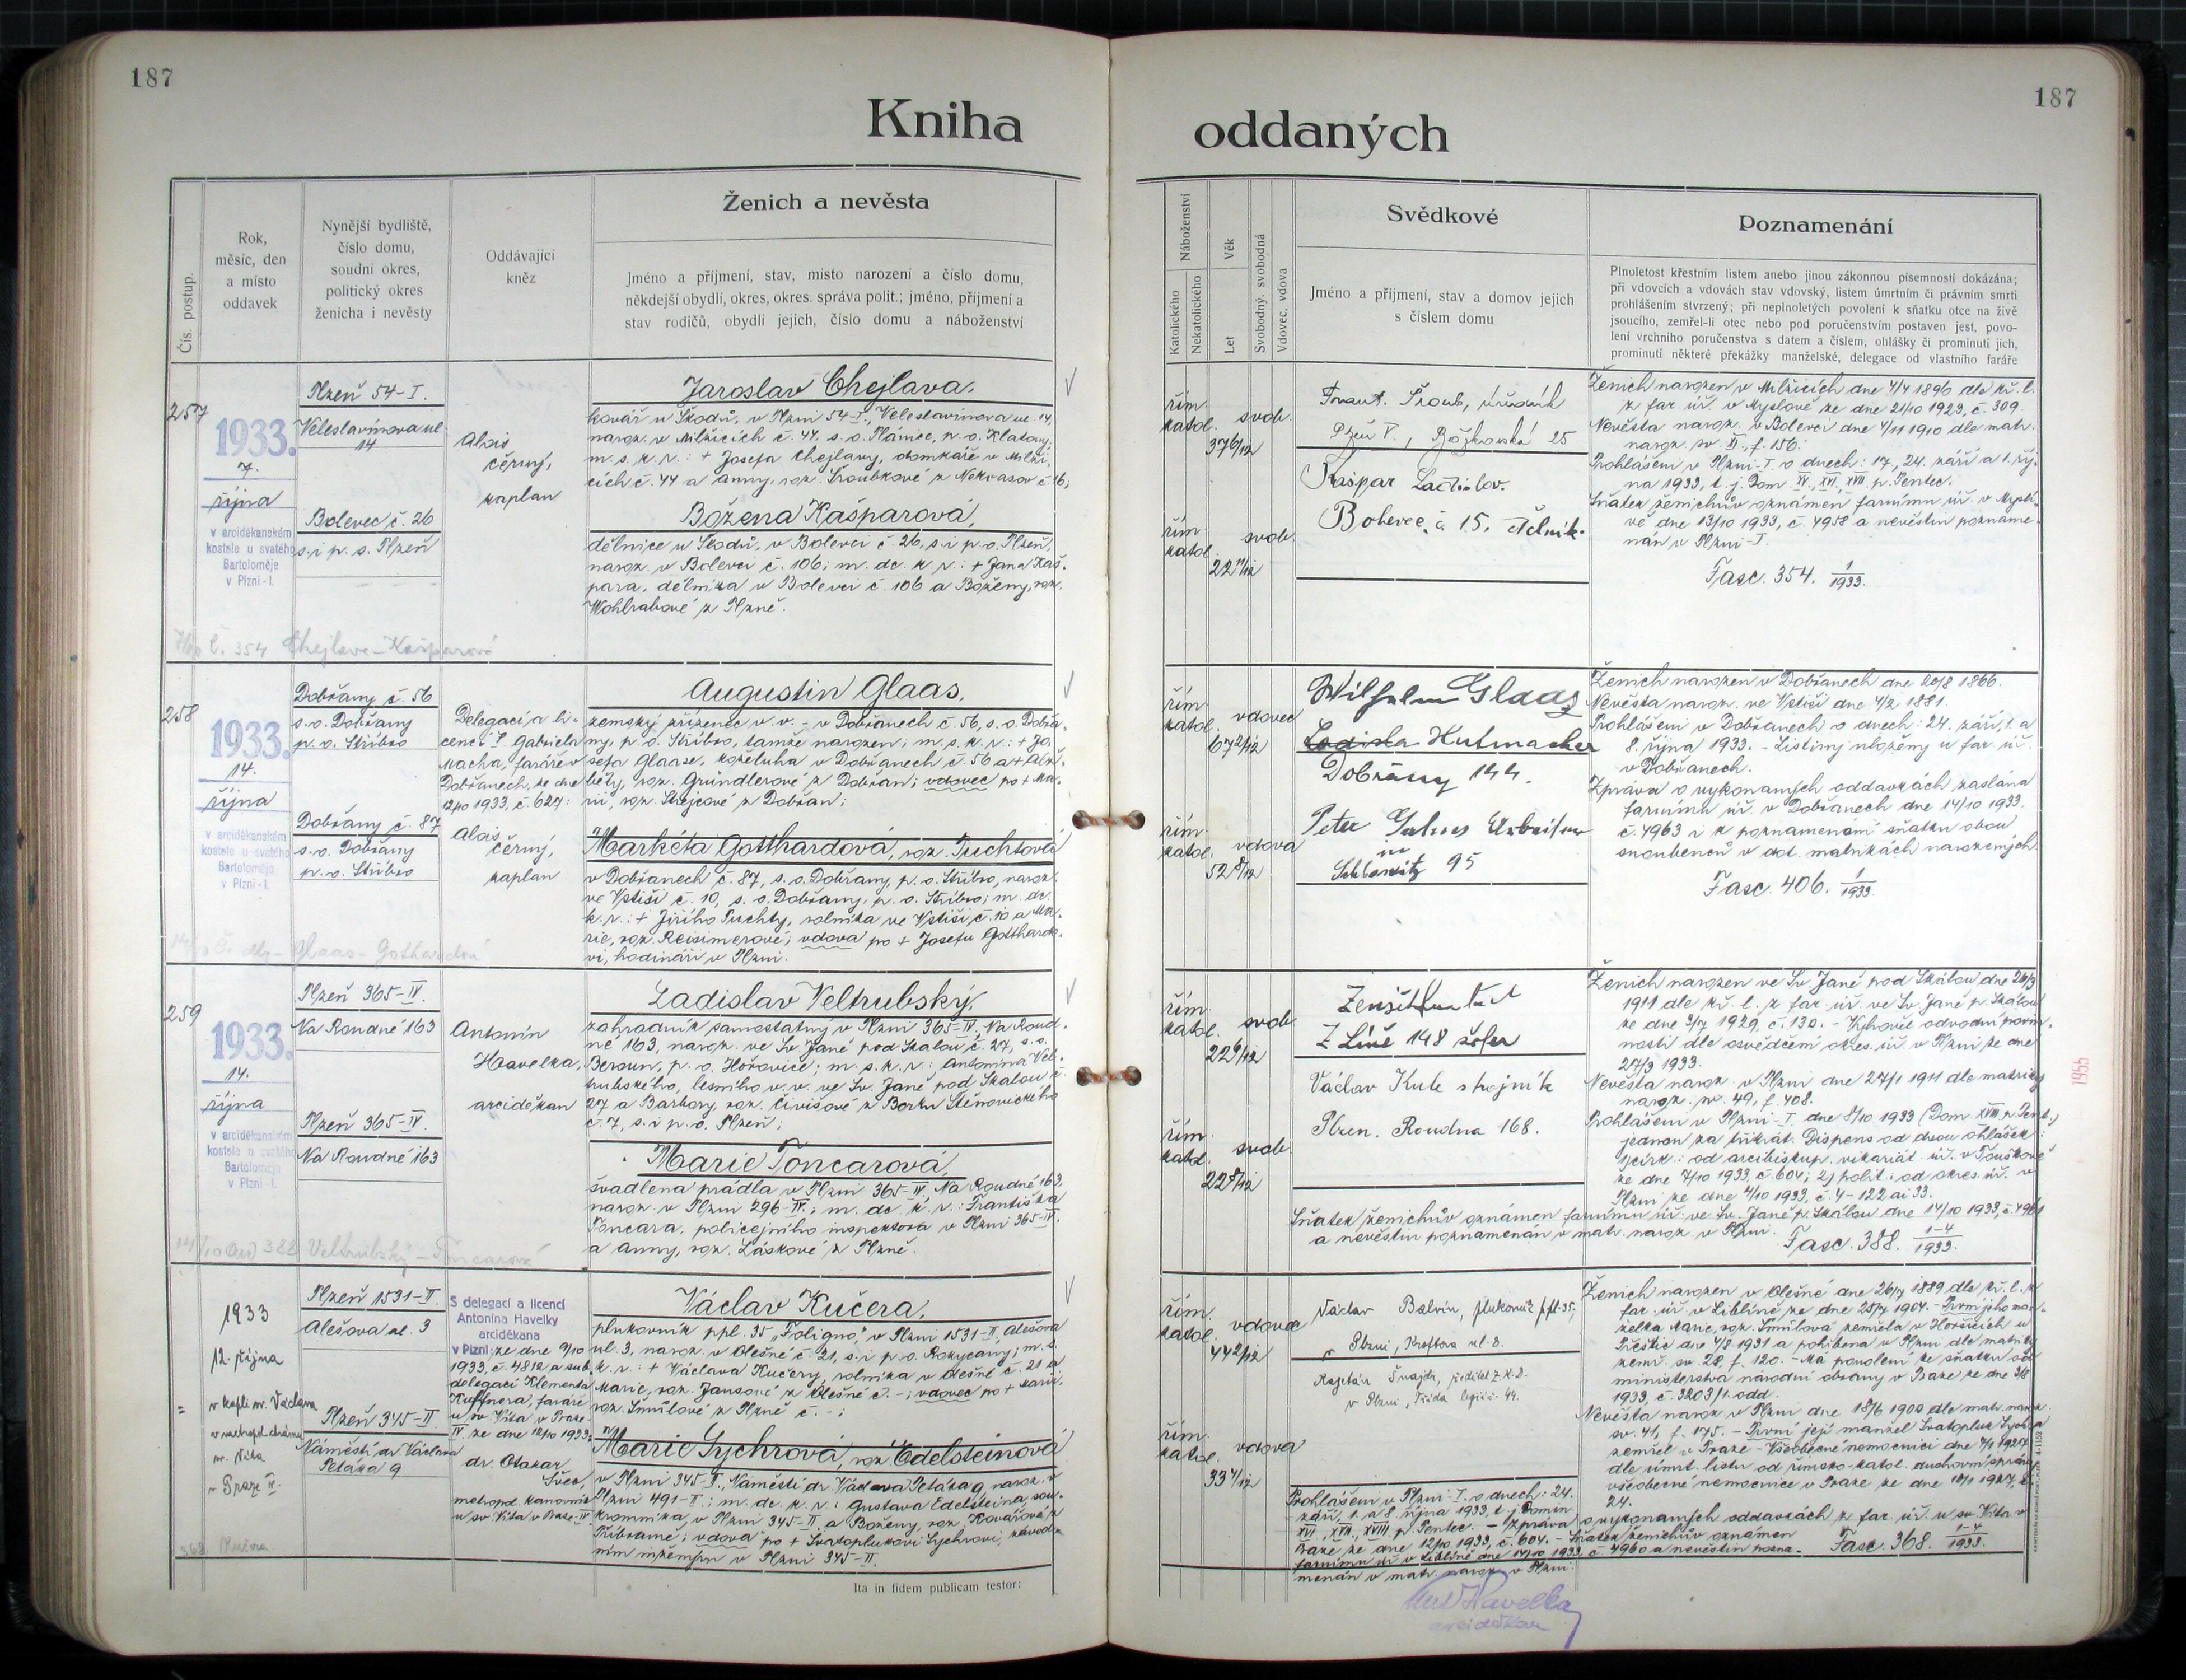 187
187
Kniha
oddaných
Čís. postup.
Rok,
měsíc, den
a místo
oddavek
Nynější bydliště,
číslo domu,
soudní okres,
politický okres
ženicha i nevěsty
Oddávající
kněz
Ženich a nevěsta
Jméno a příjmení, stav, místo narození a číslo domu,
někdejší obydlí, okres, okres. správa polit.; jméno, příjmení a
stav rodičů, obydlí jejich, číslo domu a náboženství
Náboženství
Katolického
Nekatolického
Věk
Let
Svobodný, svobodná
Vdovec, vdova
Svědkové
Jméno a příjmení, stav a domov jejich
s číslem domu
Poznamenání
Plnoletost křestním listem anebo jinou zákonnou písemností dokázána;
při vdovcích a vdovách stav vdovský, listem úmrtním či právním smrti
prohlášením stvrzený; při neplnoletých povolení k sňatku otce na živě
jsoucího, zemřel-li otec nebo pod poručenstvím postaven jest, povo-
lení vrchního poručenstva s datem a číslem, ohlášky či prominutí jich,
prominutí některé překážky manželské, delegace od vlastního faráře
257
1933.
7.
října
v arciděkanském
kostele u svatého
Bartoloměje
v Plzni-I.
Plzeň 54-I.
Veleslavínova ul
14
Bolevec č. 26
s. i p. o. Plzeň
Alois
Černý,
kaplan
Jaroslav Chejlava,
kovář u Škodů, v Plzni 54-I, Veleslavínova ul. 14,
naroz. v Milžicích č. 44, s. o. Plánice, p. o. Klatovy;
m. s. k. r.: + Josefa Chejlavy, domkáře v Milži-
cích č. 44 a Anny, roz. Šroubkové z Nekvasov č. 6;
Božena Kašparová,
dělnice u Škodů, v Bolevci č. 26, s. i p. o. Plzeň,
naroz. v Bolevci č. 106; m. dc. k. r.: + Jana Kaš-
para, dělníka v Bolevci č. 106 a Boženy, roz.
Wohlrabové z Plzně.
č. 354 Chejlava-Kašparová
řím.
katol.
svob.
37 6/12
řím.
katol.
svob.
22 11/12
Frant. Šroub, úředník
Plzeň V., Božkovská 25
Kašpar Ladislav.
Bolevec č 15. dělník.
Ženich narozen v Milžicích dne 4/4 1896 dle kř. l.
z far. úř. v Myslově ze dne 21/10 1923, č. 309.
Nevěsta naroz. v Bolevci dne 4/11 1910 dle matr.
naroz. sv. II, f. 156.
Prohlášeni v Plzni-I. o dnech: 17., 24. září a 1. říj-
na 1933, t. j. Dom XV., XVI., XVII. p. Pentec.
Sňatek ženichův oznámen farnímu úř. v Myslo-
vě dne 13/10 1933, č. 4958 a nevěstin pozname-
nán v Plzni-I.
Fasc. 354. 1/1933.
258
1933.
14.
října
v arciděkanském
kostele u svatého
Bartoloměje
v Plzni-I.
Dobřany č. 56
s. o. Dobřany
p. o. Stříbro
Dobřany č. 87
s. o. Dobřany
p. o. Stříbro
Delegací a li-
cencí P. Gabriela
Macha, faráře v
Dobřanech, ze dne
12/10 1933, č. 627:
Alois
Černý,
kaplan
Augustin Glaas,
zemský zřízenec v. v. - v Dobřanech č. 56, s. o. Dobřa-
ny, p. o. Stříbro, tamže narozen; m. s. k. r.: + Jo-
sefa Glaase, koželuha v Dobřanech č. 56 a + Alž-
běty, roz. Gründlerové z Dobřan; vdovec po + Ma-
rii, roz. Strejcové z Dobřan;
Markéta Gotthardová, roz. Puchtová
v Dobřanech č. 87, s. o. Dobřany, p. o. Stříbro, naroz.
ve Vstiši č. 10, s. o. Dobřany, p. o. Stříbro; m. dc.
k. r.: + Jiřího Puchty, rolníka ve Vstiši č. 10 a Ma-
rie, roz. Reisimerové; vdova po + Josefu Gotthardo-
vi, hodináři v Plzni.
Glaas-Gothardová
řím.
katol.
vdovec
67 2/12
řím.
katol.
vdova
52 8/12
Wilhelm Glaas
Hutmacher
Dobřany 144.
Peter
in
95
Ženich narozen v Dobřanech dne 20/8 1866.
Nevěsta naroz. ve Vstiši dne 4/2 1881.
Prohlášeni v Dobřanech o dnech: 24. září, 1. a
8. října 1933. - Listiny uloženy u far. úř.
v Dobřanech.
Zpráva o vykonaných oddavkách zaslána
farnímu úř. v Dobřanech dne 14/10 1933,
č. 4963 i k poznamenání sňatku obou
snoubenců v odd. matrikách narozených.
Fasc. 406. 1/1933.
259
1933.
14.
října
v arciděkanském
kostele u svatého
Bartoloměje
v Plzni-I.
Plzeň 365-IV.
Na Roudné 163
Plzeň 365-IV.
Na Roudné 163
Antonín
Havelka,
arciděkan
Ladislav Veltrubský,
zahradník samostatný v Plzni 365-IV, Na Roud-
né 163, naroz. ve Sv. Janě pod Skalou č. 27, s. o.
Beroun, p. o. Hořovice; m. s. k. r.: Antonína Vel-
trubského, lesního v. v. ve Sv. Janě pod Skalou č.
27 a Barbory, roz. Čivišové z Borku Štěnovického
č. 7, s. i p. o. Plzeň;
Marie Toncarová,
švadlena prádla v Plzni 365-IV, Na Roudné 163,
naroz. v Plzni 296-IV.; m. dc. k. r.: Františka
Toncara, policejního inspektora v Plzni 365-IV.
a Anny, roz. Láskové z Plzně.
Veltrubský-Toncarová
řím.
katol.
svob
22 6/12
řím.
katol.
svob.
22 8/12
Z Líně 148 šofer
Václav Kule strojník
Plzen. Roudna 168.
Ženich narozen ve Sv. Janě pod Skalou dne 26/3
1911 dle kř. l. z far. úř. ve Sv. Janě p. Skalou
ze dne 3/7 1929, č. 130. - Vyhověl odvodní povin-
nosti dle osvědčení okres. úř. v Plzni ze dne
27/3 1933.
Nevěsta naroz. v Plzni dne 27/1 1911 dle matriky
naroz. sv. 49, f. 408.
Prohlášeni v Plzni-I. dne 8/10 1933 (Dom. XVIII. p. Pent.)
jednou za třikrát. Dispens od dvou ohlášek:
1) círk.: od arcibiskup. vikariát. úř. v Touškově
ze dne 7/10 1933, č. 604; 2) polit.: od okres. úř. v
Plzni ze dne 4/10 1933, č. 4-122 ai 33.
Sňatek ženichův oznámen farnímu úř. ve Sv. Janě p. Skalou dne 14/10 1933, č. 4961
a nevěstin poznamenán v matr. naroz. v Plzni.
Fasc. 388. 1-4/1933.
1955
=
1933
12. října
v kapli sv. Václava
v metropol. chrámu
sv. Víta
v Praze IV.
Plzeň 1531-II.
Alešova ul. 3
Plzeň 345-II.
Náměstí dr. Václava
Petáka 9
S delegací a licencí
Antonína Havelky
arciděkana
v Plzni, ze dne 9/10
1933, č. 4812 a sub.
delegací Klementa
Kuffnera, faráře
u sv. Víta v Praze-
IV ze dne 12/10 1933:
dr. Otakar
Švec,
metropol. kanovník
u sv. Víta v Praze-IV
Václav Kučera,
plukovník ppl. 35 „Foligno“, v Plzni 1531-II, Alešova
ul. 3, naroz. v Olešné č. 21, s. i p. o. Rokycany; m. s.
k. r.: + Václava Kučery, rolníka v Olešné č. 21 a
Marie, roz. Jansové z Olešné č. -; vdovec po + Marii,
roz. Šmůlové z Plzně č. -;
Marie Sychrová, roz. Edelsteinová,
v Plzni 345-II., Náměstí dr. Václava Petáka 9, naroz. v
Plzni 491-I.; m. dc. k. r.: Gustava Edelsteina, sou-
kromníka v Plzni 345-II. a Boženy, roz. Kovářové z
Příbramě; vdova po + Svatoplukovi Sychrovi, závod-
ním inženýru v Plzni 345-II.
368 Kučera
řím.
katol.
vdovec
44 2/12
řím.
katol.
vdova
33 4/12
Václav Balvín, plukovník ppl. 35,
v Plzni, Kroftova ul. 8.
Kapitán Švajda, ředitel Z.K.D.
v Plzni, Třída legií č. 44.
Ženich narozen v Olešné dne 26/7 1889 dle kř. l. z
far. úř. v Liblíně ze dne 25/7 1904. - První jeho man-
želka Marie, roz. Šmůlová zemřela v Horšicích u
Přeštic dne 4/8 1931 a pohřbena v Plzni dle matriky
zemř. sv. 28, f. 120. - Má povolení ke sňatku od
ministerstva národní obrany v Praze ze dne
1933, č. 3203/1. odd.
Nevěsta naroz. v Plzni dne 18/6 1900 dle matr. naroz.
sv. 41, f. 175. - První její manžel Svatopluk Sychra
zemřel v Praze - Všeobecné nemocnici dne 7/1 1927
dle úmrt. listu od římsko-katol. duchovní správy
všeobecné nemocnice v Praze ze dne 10/1 1927, č.
24.
Prohlášeni v Plzni-I. o dnech: 24.
září, 1. a 8. října 1933, t. j. Domin.
XVI., XVII., XVIII. p. Pentec. - Zpráva o vykonaných oddavkách z far. úř. u sv. Víta v
Praze ze dne 12/10 1933, č. 604. - Sňatek ženichův oznámen
farnímu úř. v Liblíně dne 14/10 1933, č. 4960 a nevěstin pozna-
menán v matr. naroz. v Plzni.
Fasc. 368. 1-4/1933.
Ita in fidem publicam testor:
Ant Havelka
arciděkan